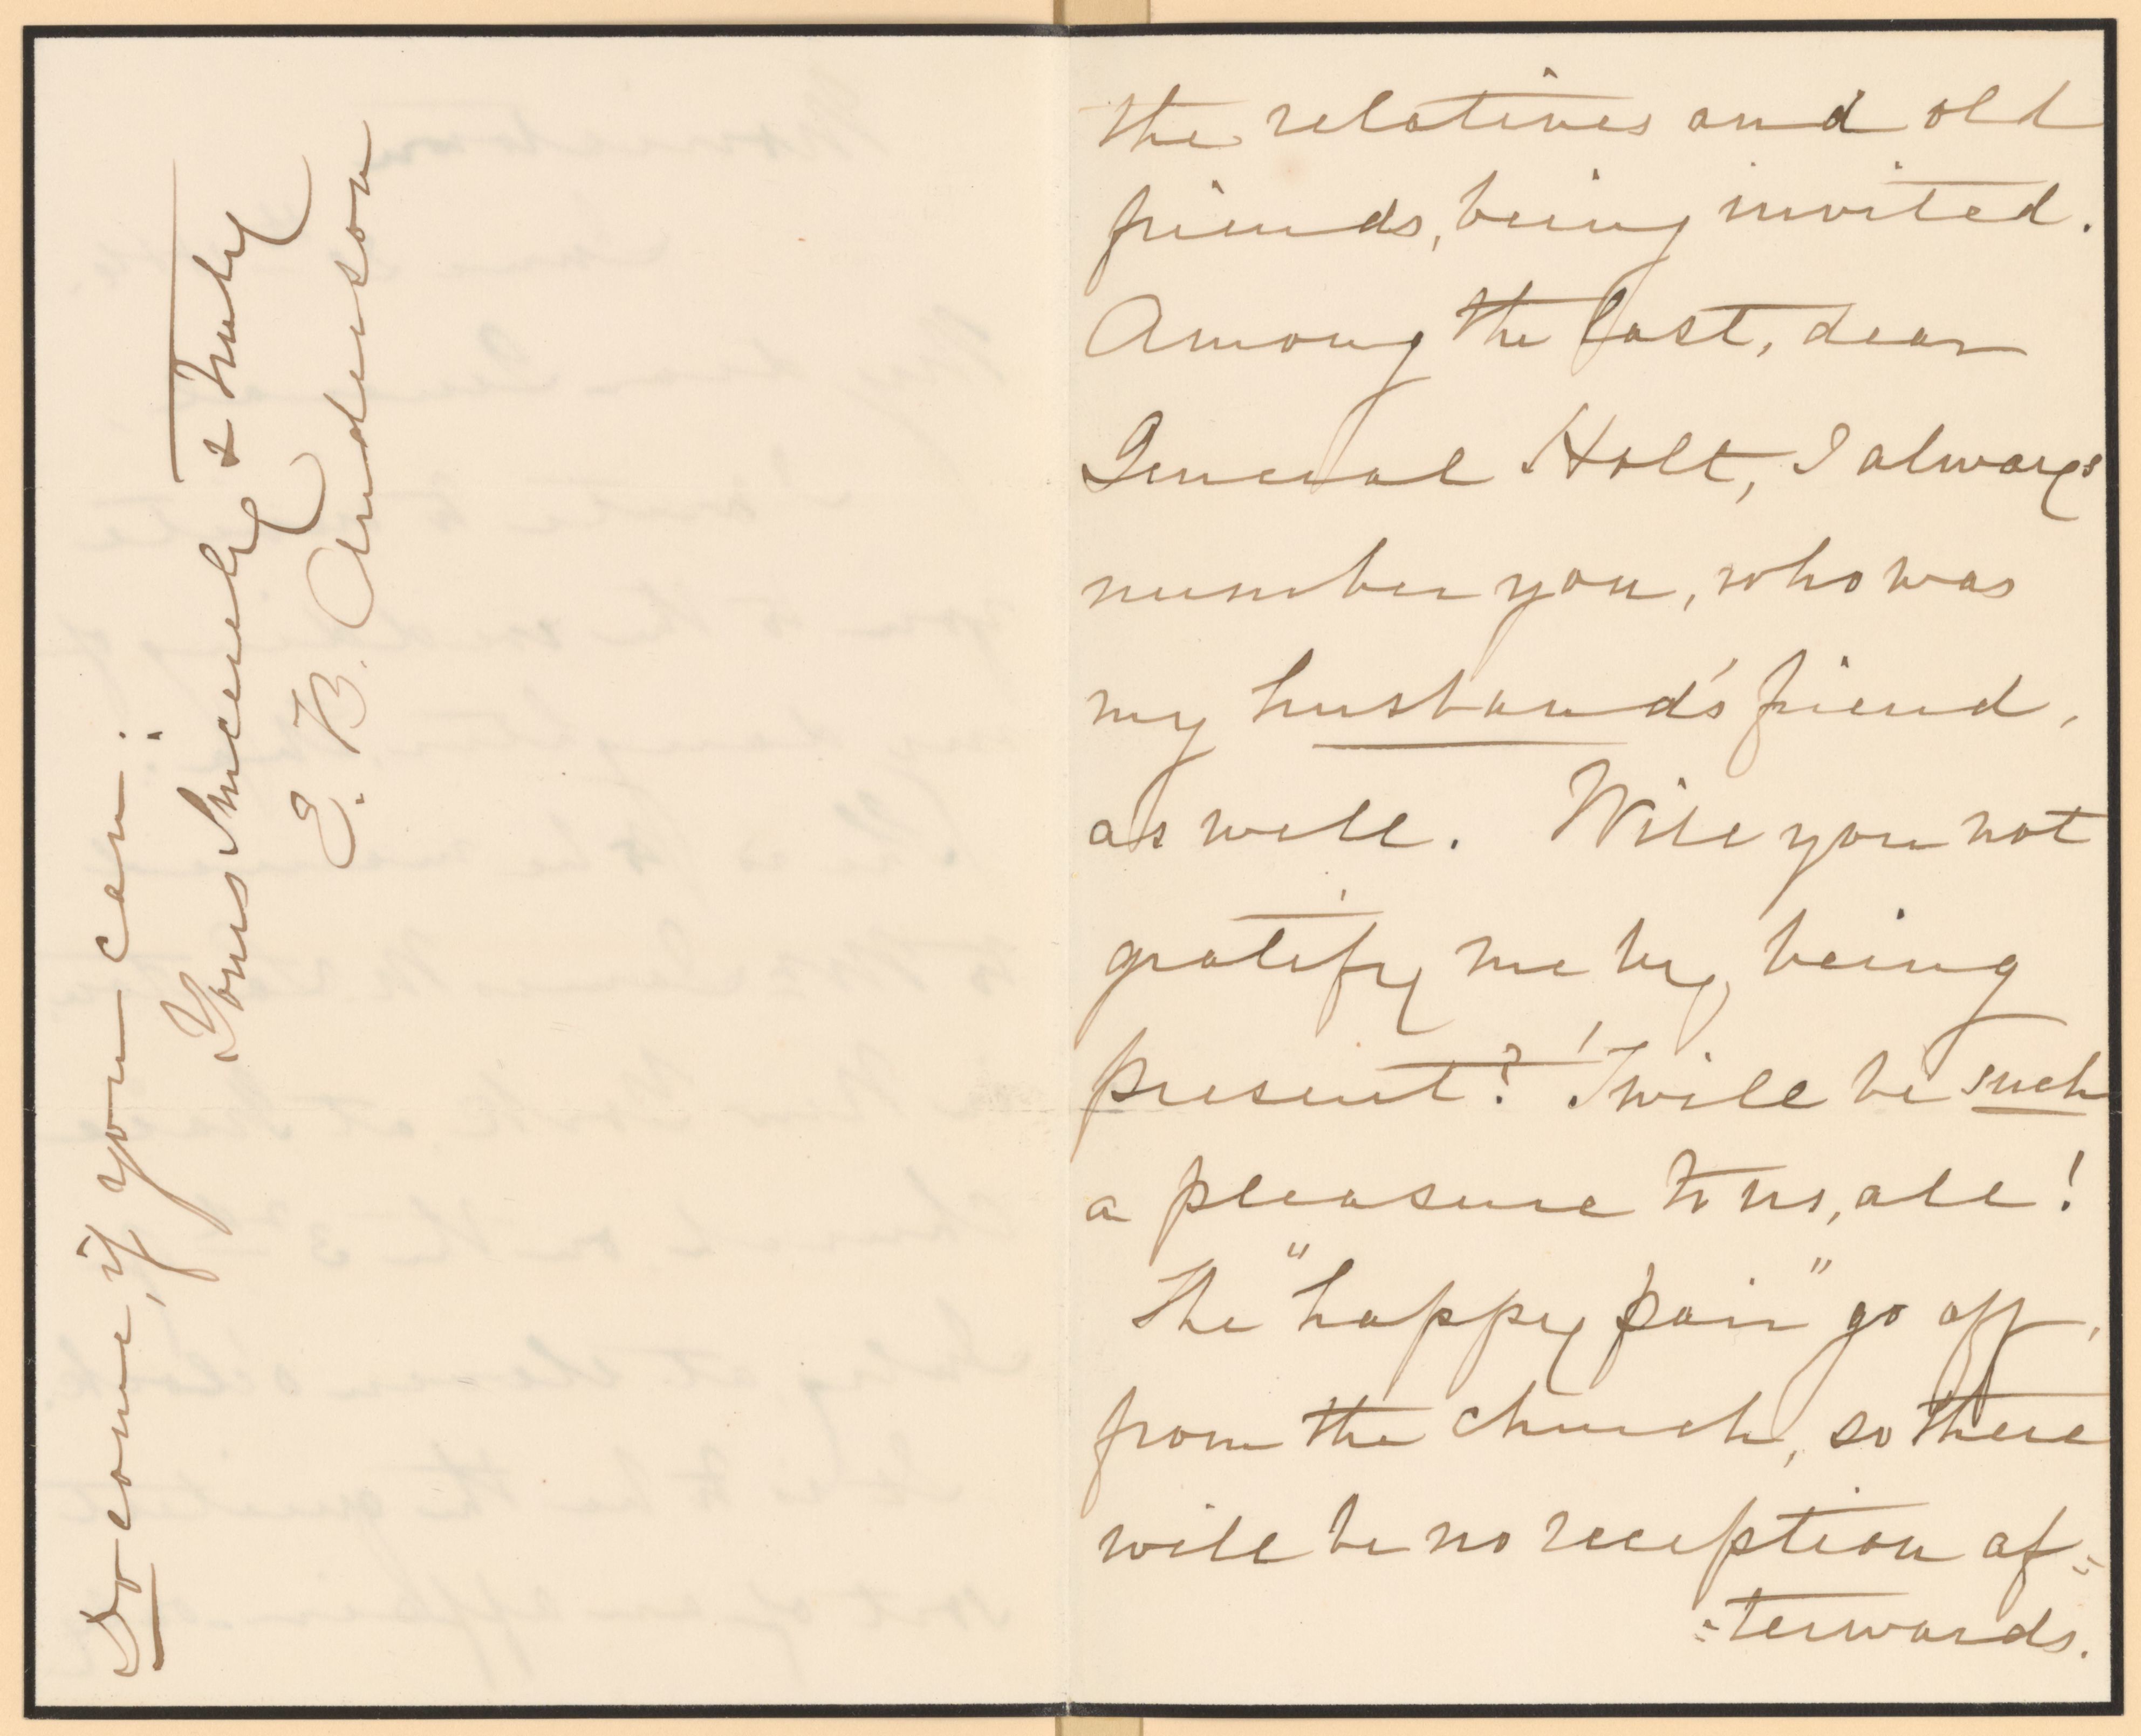 the relatives and old
friends, being invited.
Among the last, dear
General Holt, I always
number you, who was
my husband's friend,
as well. Will you not
gratify me by being
present? 'Twill be such
a pleasure to us, all!
The "happy pair" go off,
from the church, so there
will be no reception af=
=terwards.
Do come, if you can.
Yours Sincerely & Truly
E. B. Anderson